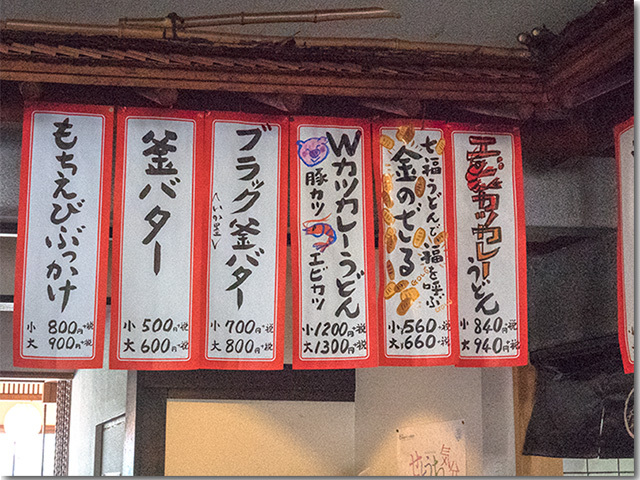 エビカツカレー
うどん
小 840円+税
大 940円+税
七福うどんで福を呼ぶ
金のざる
小 560円+税
大 660円+税
Wカツカレーうどん
豚カツ
エビカツ
小 1200円+税
大 1300円+税
ブラック釜バター
<いか墨>
小 700円+税
大 800円+税
釜バター
小 500円+税
大 600円+税
もちえびぶっかけ
小 800円+税
大 900円+税